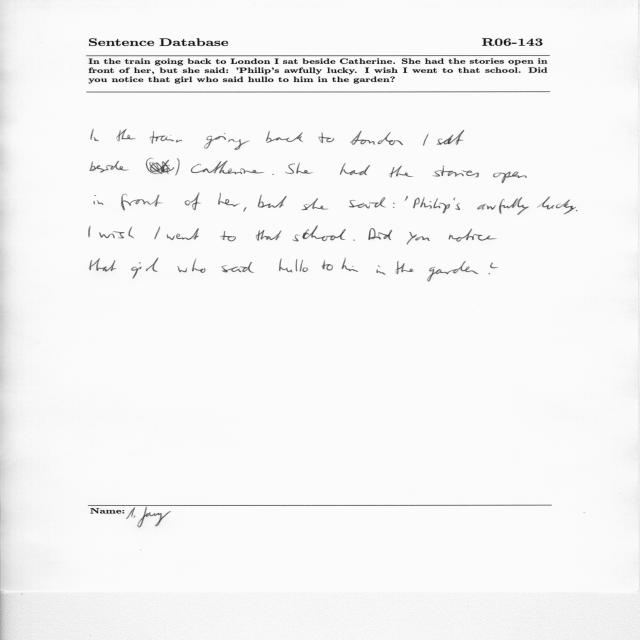 Sentence Database R06-143
In the train going back to London I sat beside Catherine. She had the stories open in
front of her, but she said: 'Philip's awfully lucky. I wish I went to that school. Did
you notice that girl who said hullo to him in the garden?
In the train going back to London I sat
beside Catherine. She had the stories open
in front of her, but she said: 'Philip's awfully lucky.
I wish I went to that school. Did you notice
that girl who said hullo to him in the garden?
Name: